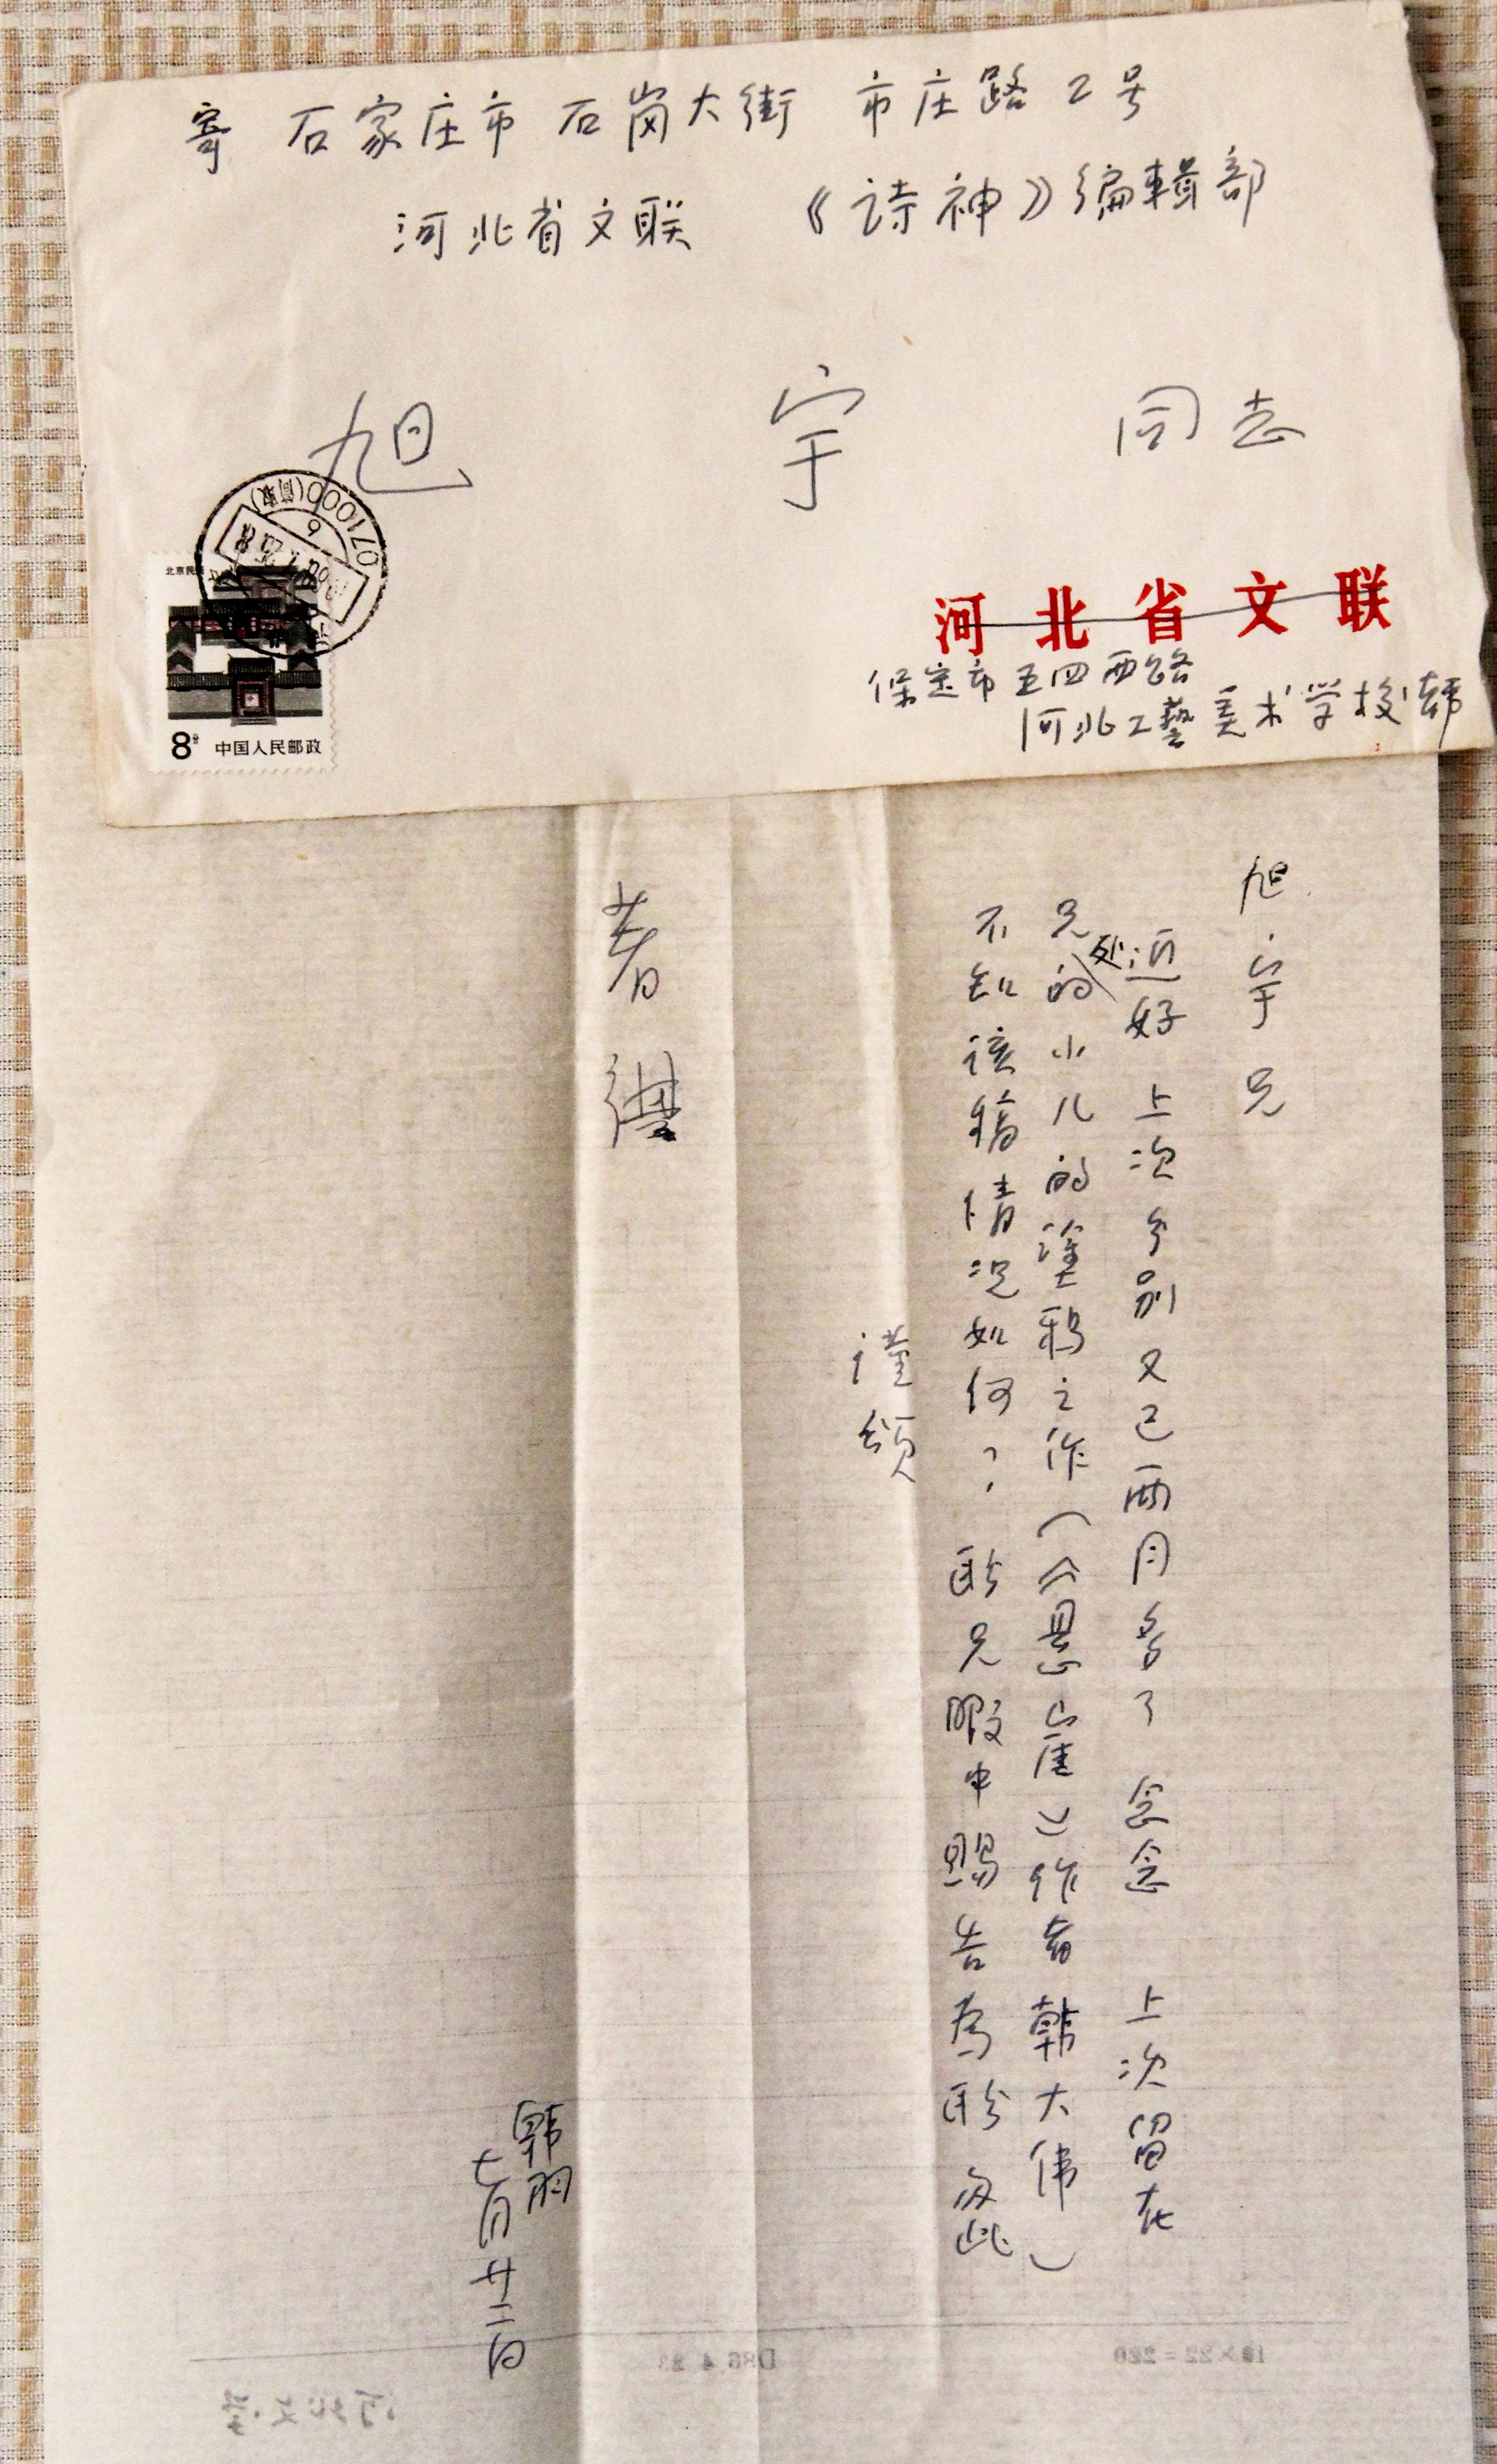 寄 石家庄市 石岗大街 市庄路 2号
河北省文联 《诗神》编輯部
旭 宇 同志
071000(首取)
6
北京民
8分 中国人民邮政
河北省文联
保定市五四西路
河北工藝美术学校韩
旭宇兄
近好 上次乡别又已两月多了 念念 上次留在
兄处的小儿的塗鸦之作(《悬崖》作者韩大伟)
不知该稿情况如何?盼兄暇中赐告为盼 多此
谨颂
著祺
韩羽
七月廿二日
10×22=220
D86.4.23
河北文学